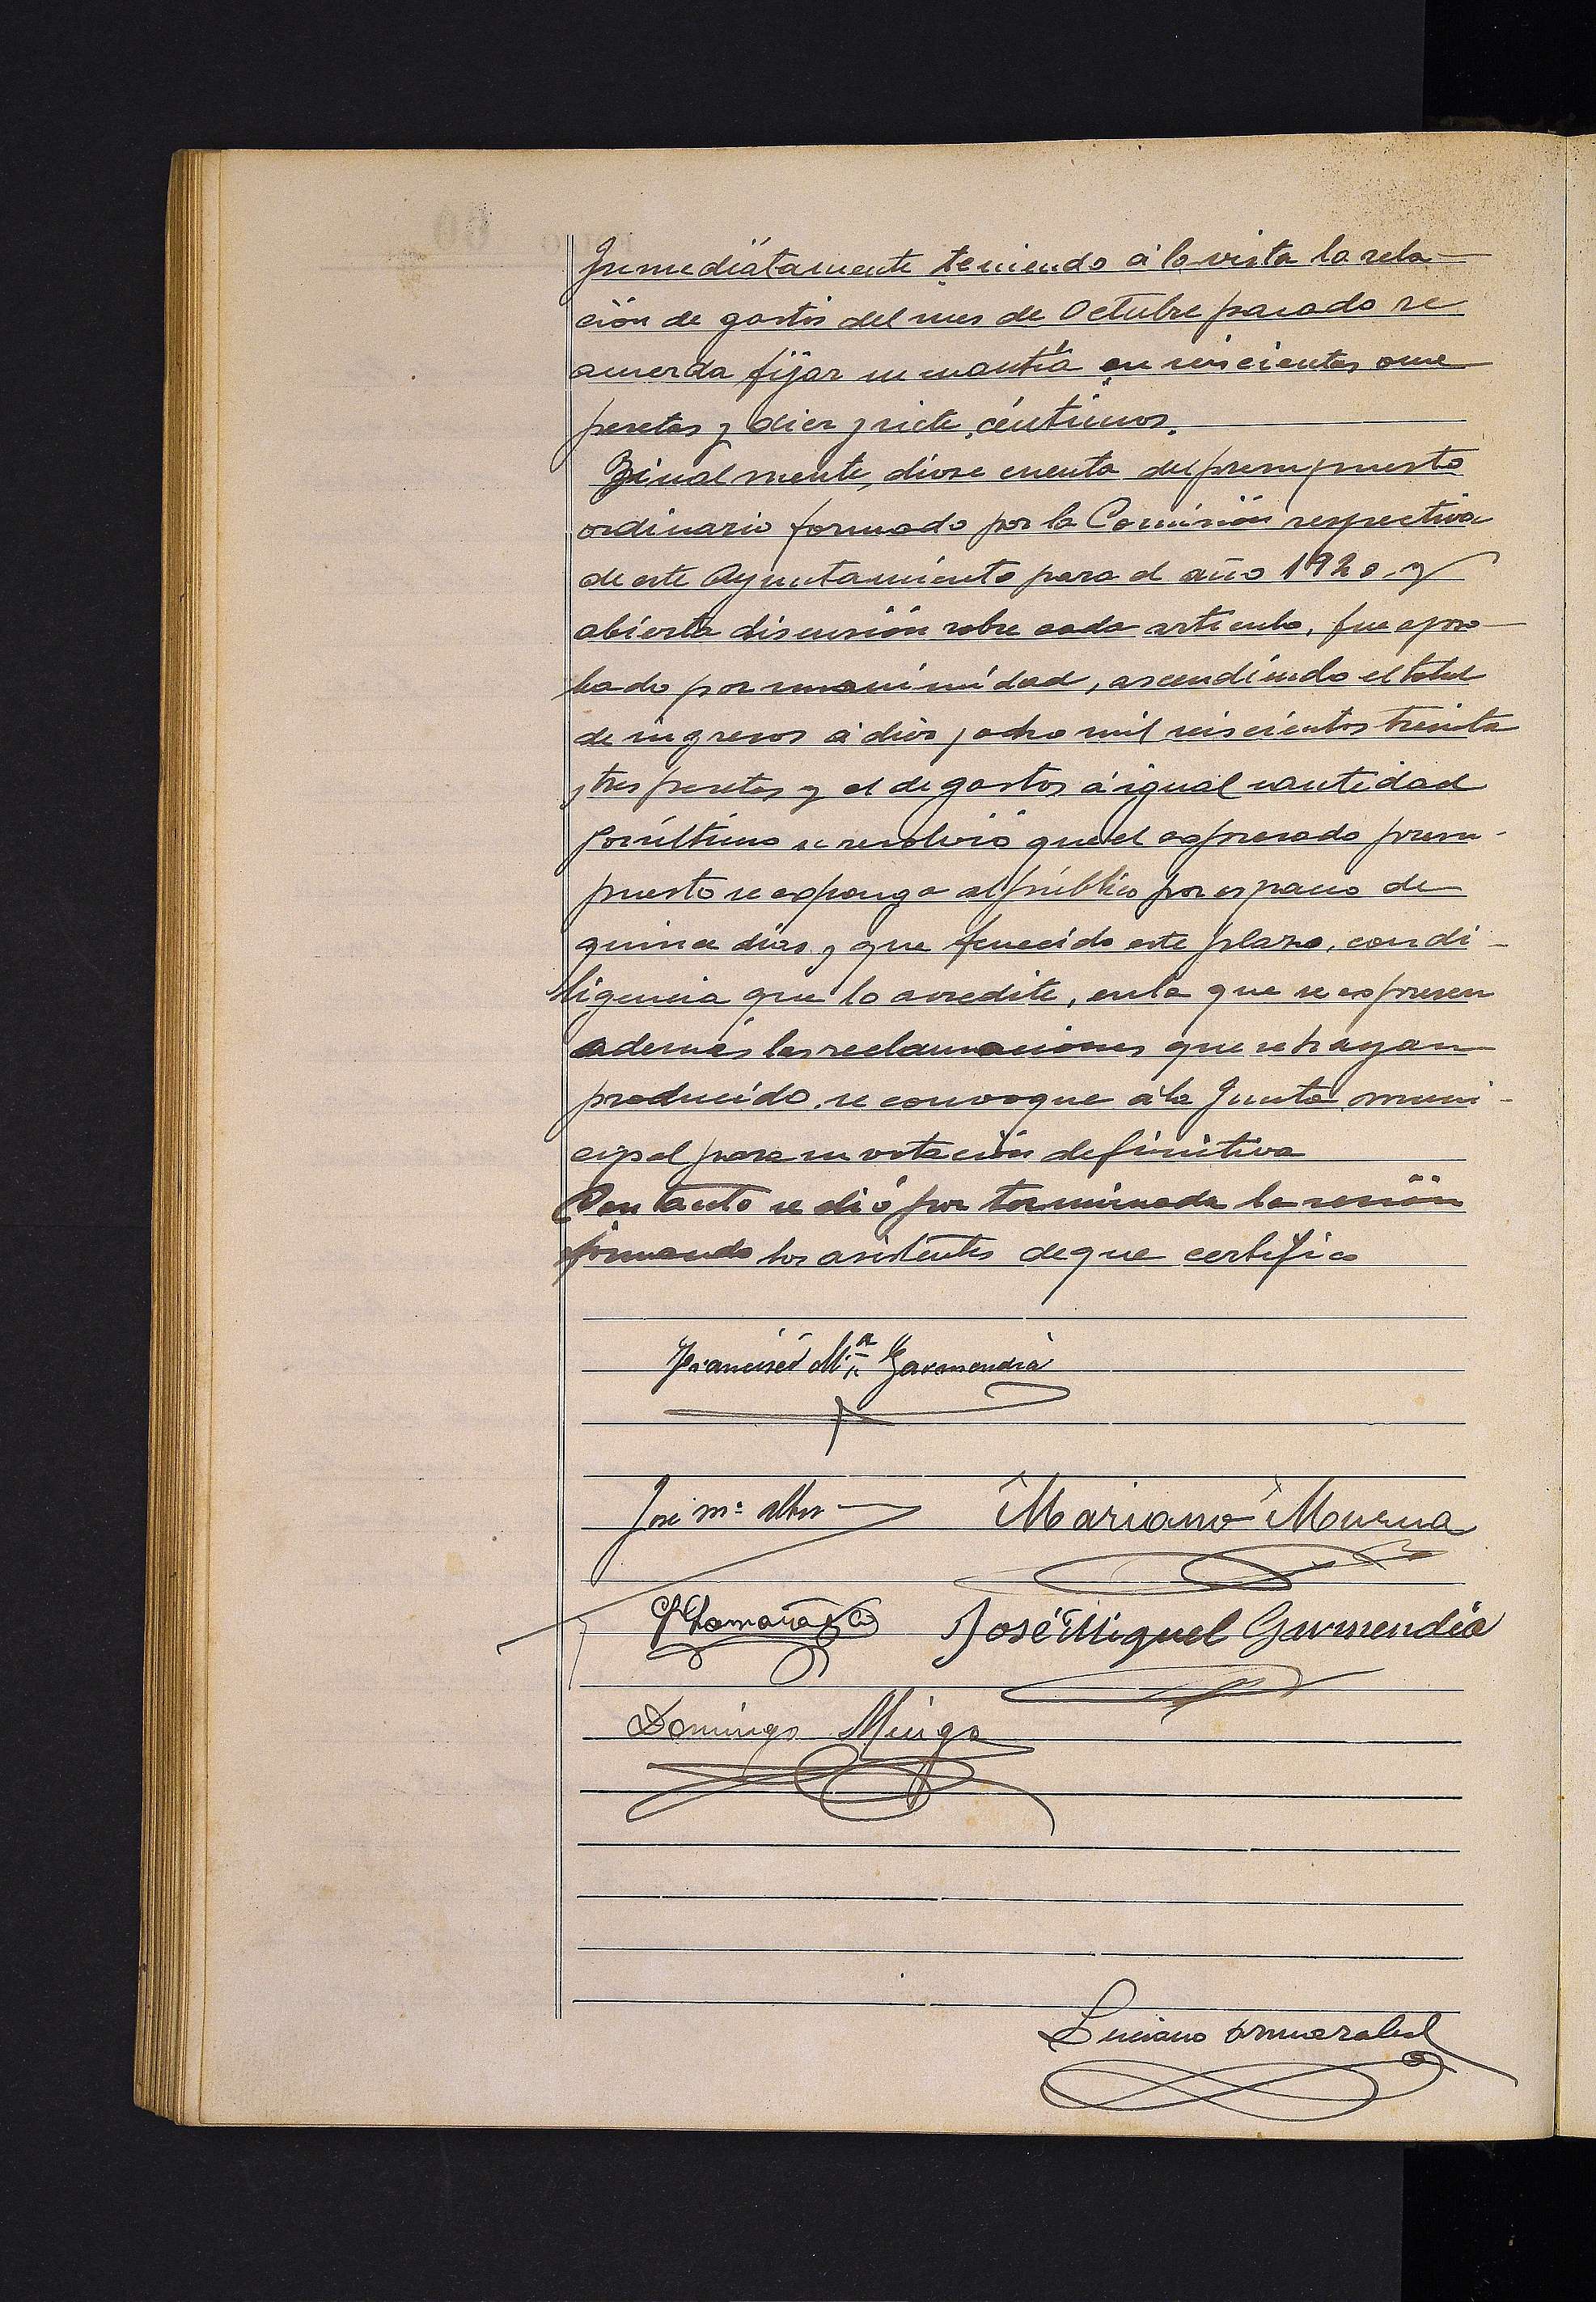 Inmediátamente teniendo á la vista la rela-
ción de gastos del mes de Octubre pasado se
acuerda fijar su cuantía en seiscientas once
pesetas y diez y siete céntimos.
Finalmente, diose cuenta del presupuesto
ordinario formado por la Comisión respectiva
de este Ayuntamiento para el año 1920 y
abierta discusión sobre cada artículo, fue apro-
bado por unanimidad, ascendiendo el total
de ingresos á diez y ocho mil seiscientos treinta
y tres pesetas y el de gastos á igual cantidad
por último se resolvió que el expresado presu-
puesto se exponga al público por espacio de
quince días y que fenecido este plazo, con di-
ligencia que lo acredite, en la que se expresen
además las reclamaciones que se hayan
producido se convoque á la Junta muni-
cipal para su votación definitiva
Con tanto se dió por terminada la sesión
firmando los asistentes de que certifico
Francisco Mª Garmendia
José Mª
Mariano Muxua
José Miguel Garmendia
Domingo
Luciano